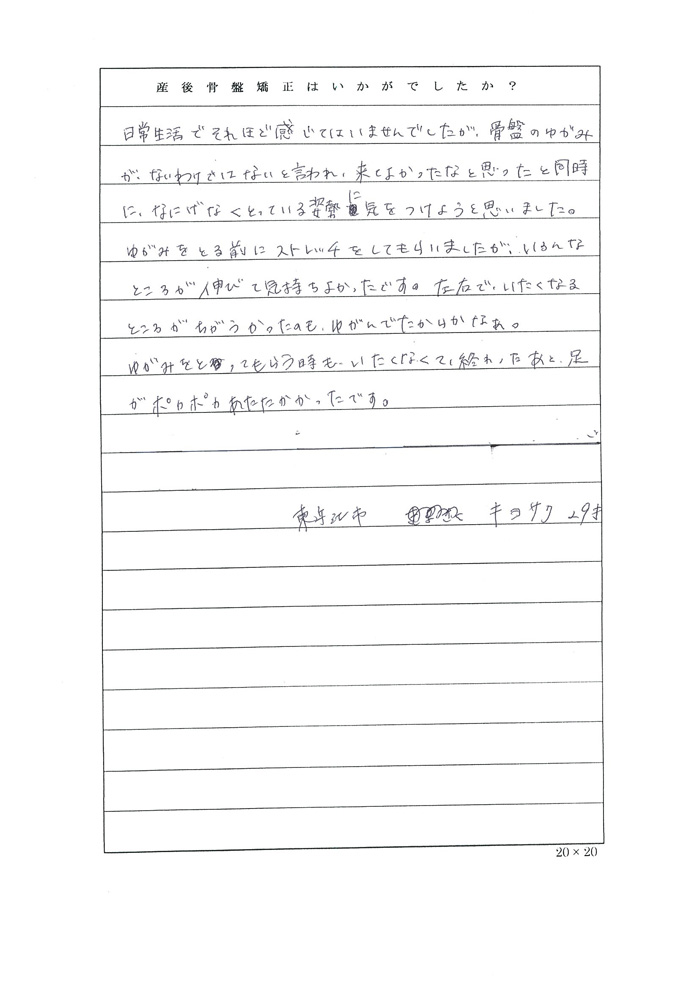 産後骨盤矯正はいかがでしたか？
日常生活でそれほど感じてはいませんでしたが、骨盤のゆがみ
が、ないわけではないと言われ、来てよかったなと思ったと同時
に、なにげなくとっている姿勢に気をつけようと思いました。
ゆがみをとる前にストレッチをしてもらいましたが、いろんな
ところが伸びて気持ちよかったです。左右で、いたくなる
ところがちがうかったのも、ゆがんでたからかなぁ。
ゆがみをとってもらう時も、いたくなくて、終わったあと、足
がポカポカあたたかかったです。
キヨサク 29才
20×20